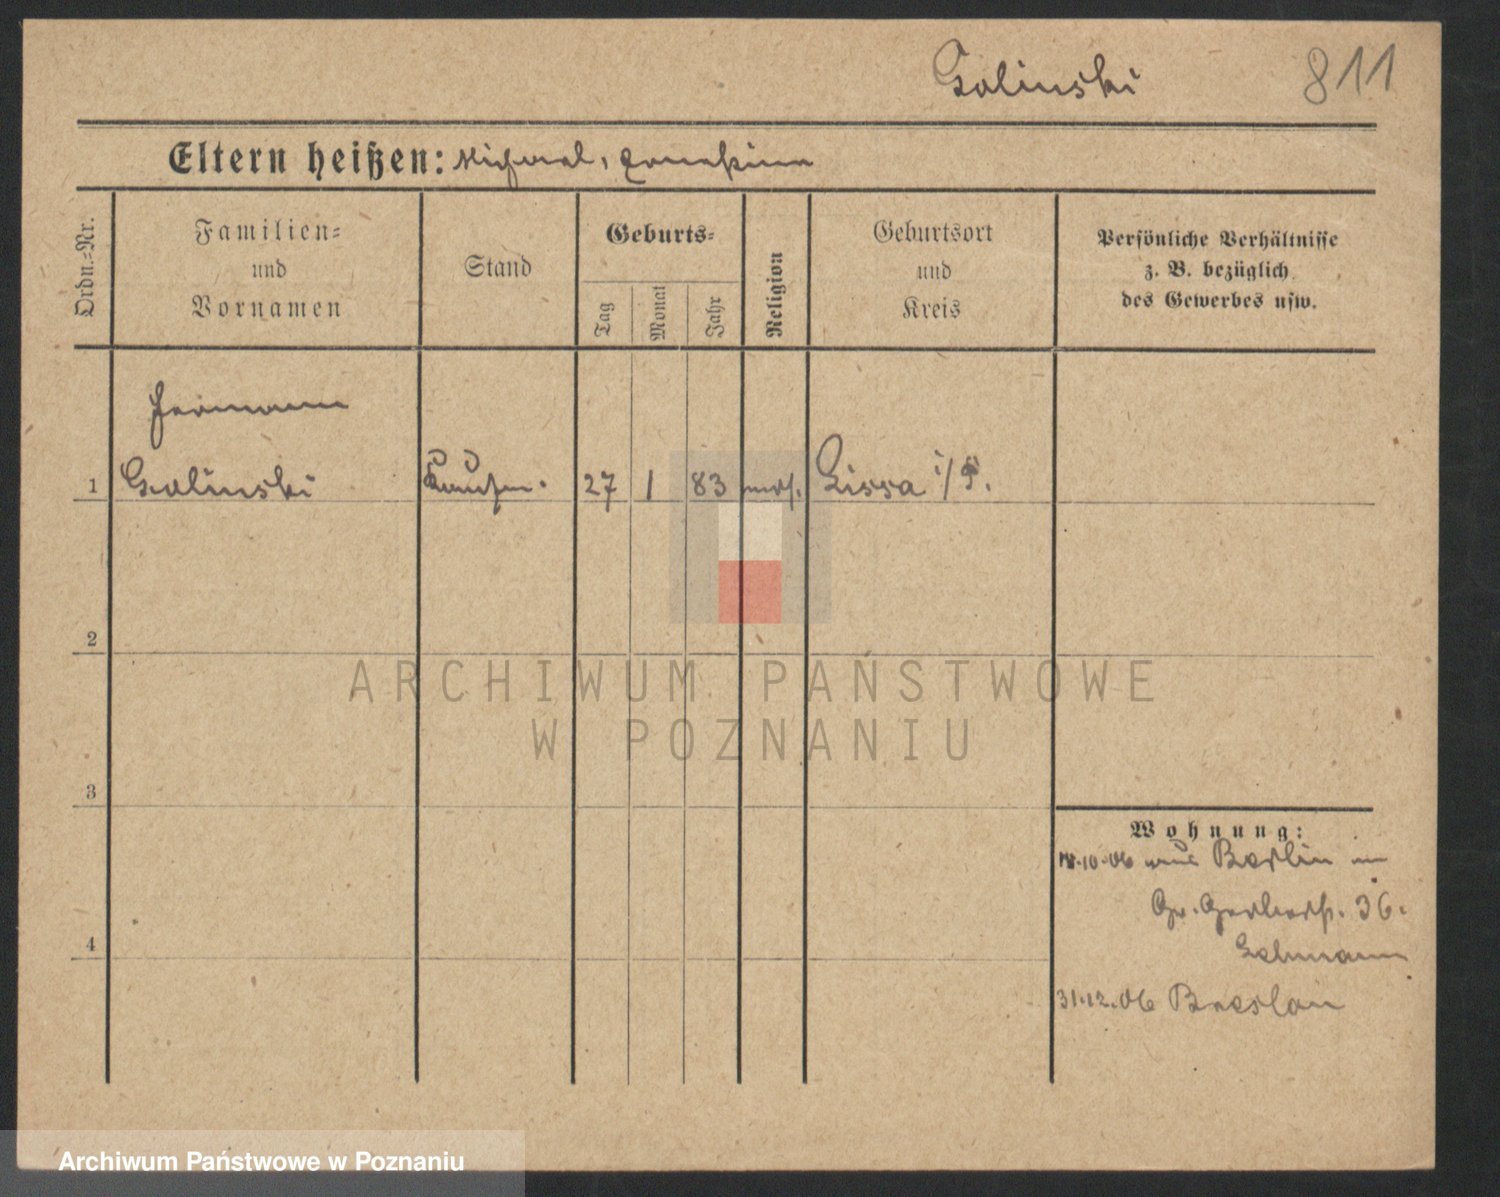 Golinski 811
Eltern heißen: Michael, Ernestine
Ordn.-Nr.
Familien-
und
Vornamen
Stand
Geburts-
Tag
Monat
Jahr
Religion
Geburtsort
und
Kreis
Persönliche Verhältnisse
z. B. bezüglich
des Gewerbes usw.
Hermann
1 Golinski Kaufm. 27 1 83 mos. Lissa i/P.
2
ARCHIWUM PAŃSTWOWE
W POZNANIU
3
Wohnung:
10.06 aus Berlin
Gr. Gerberstr. 36.
Lehmann
4
31.12.06 Breslau
Archiwum Państwowe w Poznaniu